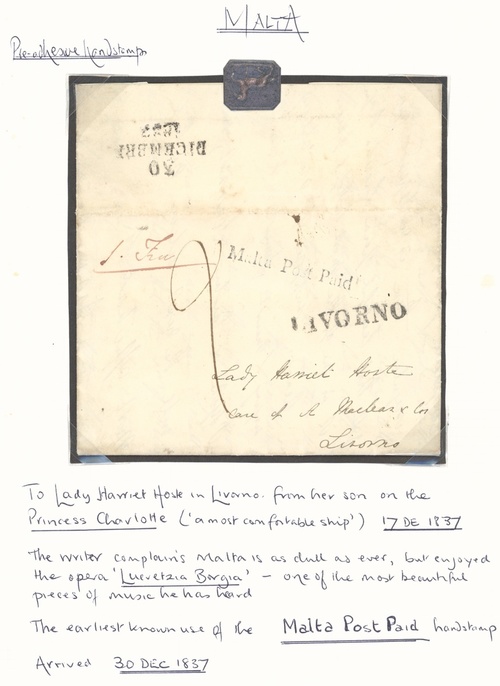 MALTA
Pre-adhesive handstamps
30
DICEMBRE
Malta Post Paid
LIVORNO
Lady Harriet Hoste
Care of A Maclean & Co
Livorno
To Lady Harriet Hoste in Livorno. from her son on the
Princess Charlotte ('a most comfortable ship') 17 DE 1837
The writer complains Malta is as dull as ever, but enjoyed
the opera 'Lucretzia Borgia' - one of the most beautiful
pieces of music he has heard
The earliest known use of the Malta Post Paid handstamp
Arrived 30 DEC 1837